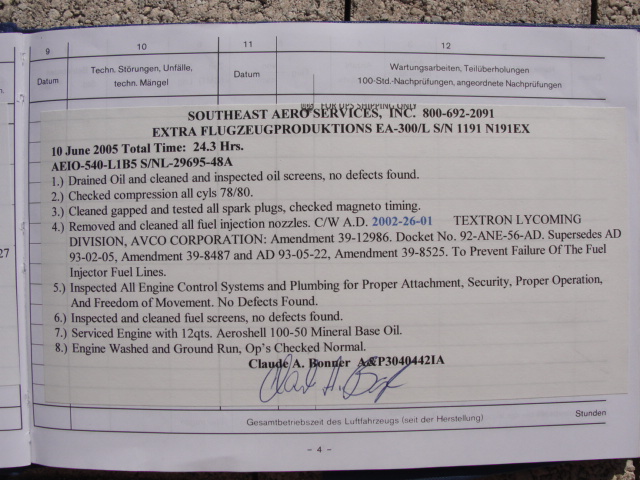 9 10 11 12
Datum Techn. Störungen, Unfälle, techn. Mängel Datum Wartungsarbeiten, Teilüberholungen
100-Std.-Nachprüfungen, angeordnete Nachprüfungen
n.
FOR UPS SHIPPING ONLY
SOUTHEAST AERO SERVICES, INC. 800-692-2091
EXTRA FLUGZEUGPRODUKTIONS EA-300/L S/N 1191 N191EX
10 June 2005 Total Time: 24.3 Hrs.
AEIO-540-L1B5 S/NL-29695-48A
1.) Drained Oil and cleaned and inspected oil screens, no defects found.
2.) Checked compression all cyls 78/80.
3.) Cleaned gapped and tested all spark plugs, checked magneto timing.
4.) Removed and cleaned all fuel injection nozzles. C/W A.D. 2002-26-01 TEXTRON LYCOMING
DIVISION, AVCO CORPORATION: Amendment 39-12986. Docket No. 92-ANE-56-AD. Supersedes AD
93-02-05, Amendment 39-8487 and AD 93-05-22, Amendment 39-8525. To Prevent Failure Of The Fuel
Injector Fuel Lines.
27
5.) Inspected All Engine Control Systems and Plumbing for Proper Attachment, Security, Proper Operation,
And Freedom of Movement. No Defects Found.
6.) Inspected and cleaned fuel screens, no defects found.
7.) Serviced Engine with 12qts. Aeroshell 100-50 Mineral Base Oil.
8.) Engine Washed and Ground Run, Op's Checked Normal.
Claude A. Bonner A&P3040442IA
Gesamtbetriebszeit des Luftfahrzeugs (seit der Herstellung) Stunden
- 4 -